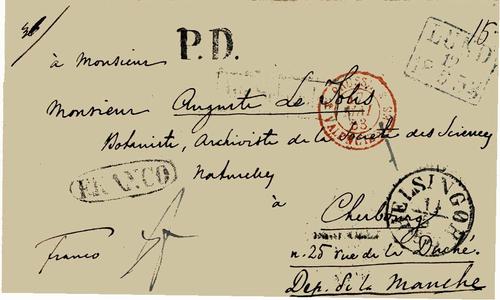 P.D.
15
à Monsieur
Monsieur Auguste Le Jolis
Botaniste, Archiviste de la Société des Sciences
Naturelles
FRANCO
à
Cherbourg
HELSINGÖR
n. 25 rue de la Duché.
Franco
Dep. de la Manche
LUND
12
VALENCIENNES